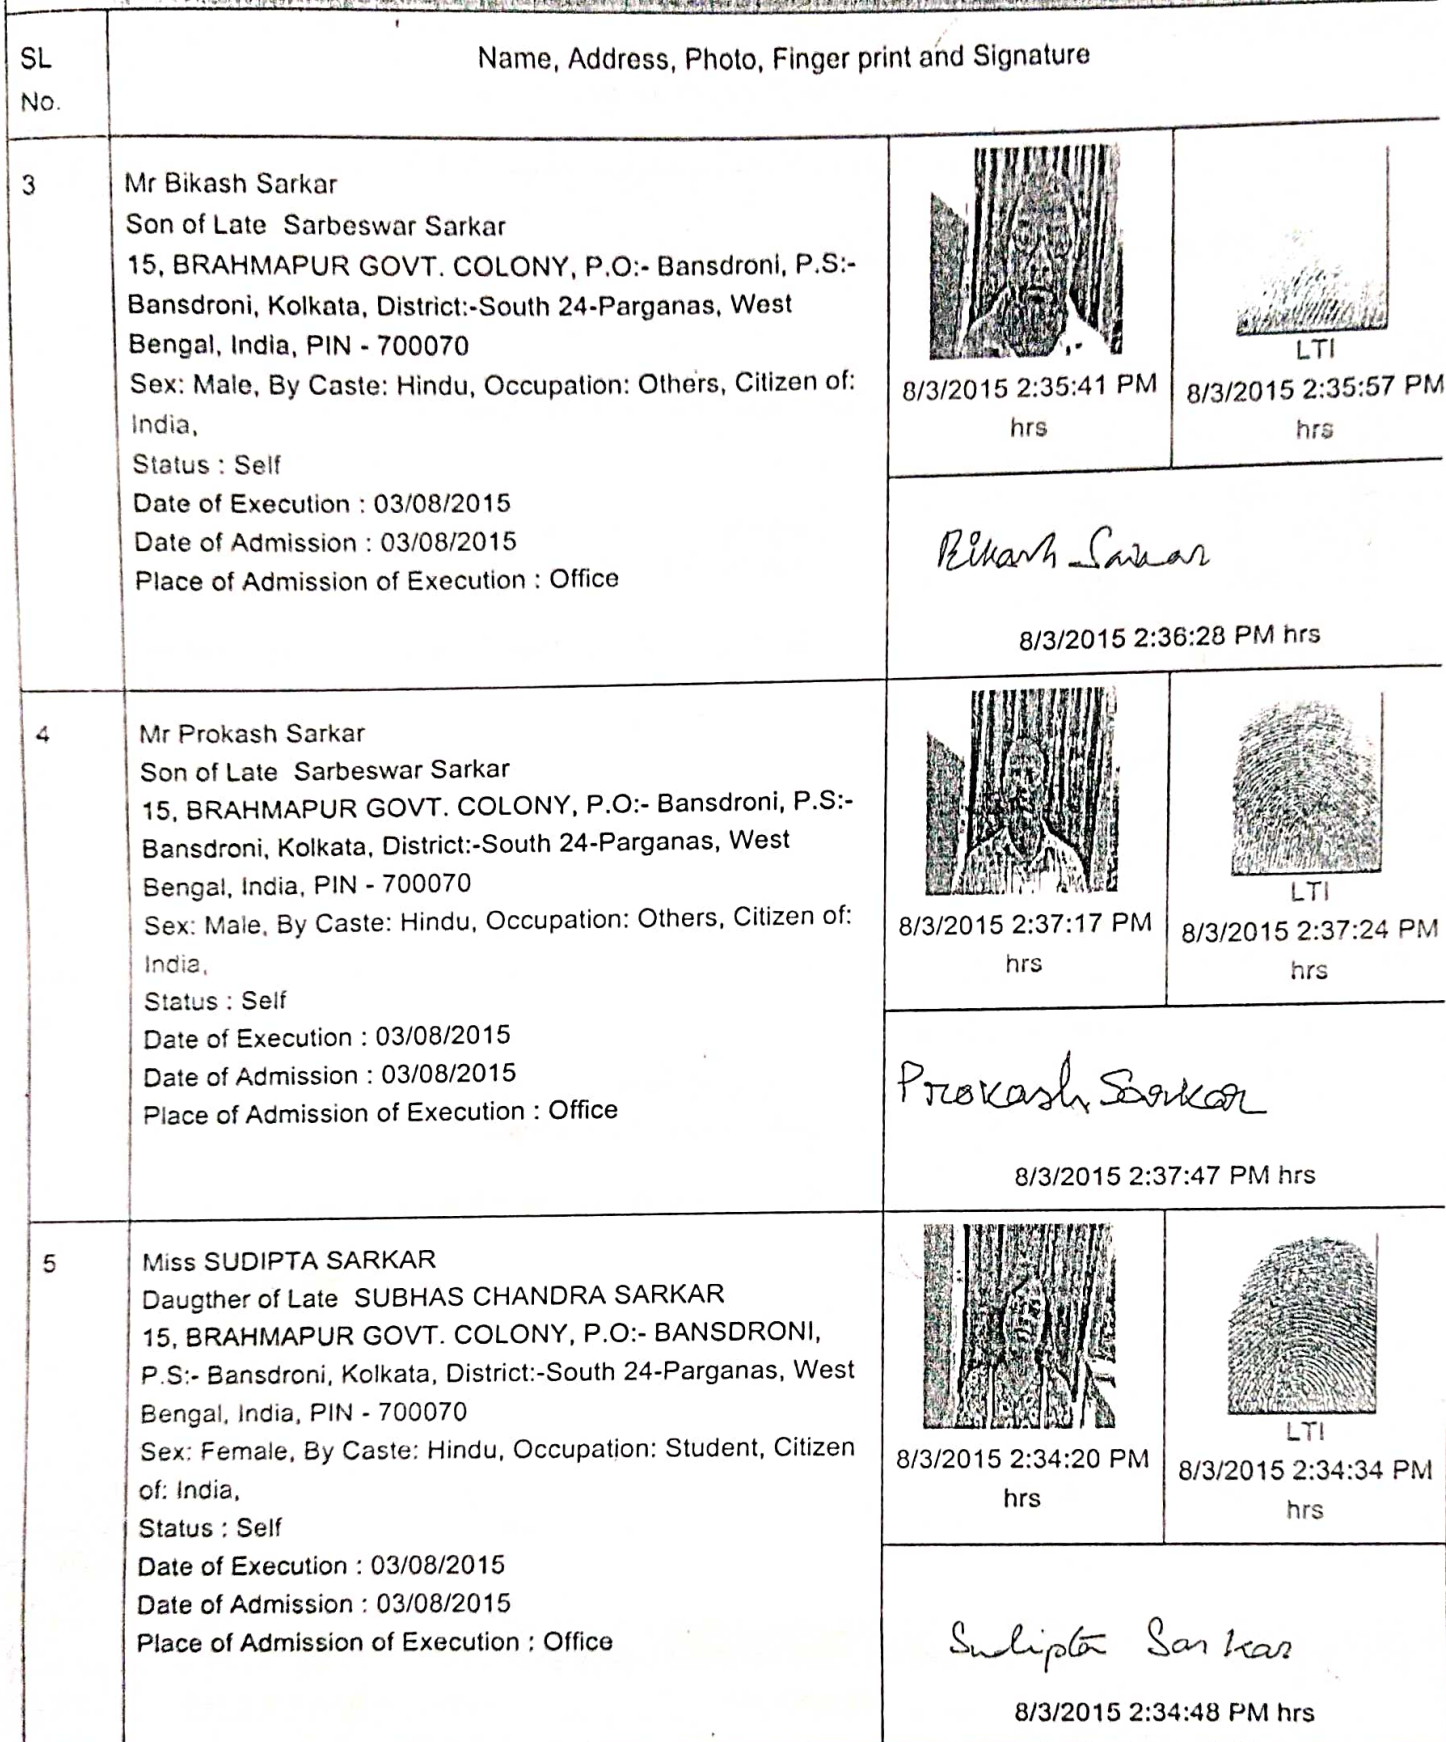 SL
No.
Name, Address, Photo, Finger print and Signature
3
Mr Bikash Sarkar
Son of Late Sarbeswar Sarkar
15, BRAHMAPUR GOVT. COLONY, P.O:- Bansdroni, P.S:-
Bansdroni, Kolkata, District:-South 24-Parganas, West
Bengal, India, PIN - 700070
Sex: Male, By Caste: Hindu, Occupation: Others, Citizen of:
India,
Status : Self
Date of Execution : 03/08/2015
Date of Admission : 03/08/2015
Place of Admission of Execution : Office
8/3/2015 2:35:41 PM
hrs
LTI
8/3/2015 2:35:57 PM
hrs
Bikash Sarkar
8/3/2015 2:36:28 PM hrs
4
Mr Prokash Sarkar
Son of Late Sarbeswar Sarkar
15, BRAHMAPUR GOVT. COLONY, P.O:- Bansdroni, P.S:-
Bansdroni, Kolkata, District:-South 24-Parganas, West
Bengal, India, PIN - 700070
Sex: Male, By Caste: Hindu, Occupation: Others, Citizen of:
India,
Status : Self
Date of Execution : 03/08/2015
Date of Admission : 03/08/2015
Place of Admission of Execution : Office
8/3/2015 2:37:17 PM
hrs
LTI
8/3/2015 2:37:24 PM
hrs
Prokash Sarkar
8/3/2015 2:37:47 PM hrs
5
Miss SUDIPTA SARKAR
Daugther of Late SUBHAS CHANDRA SARKAR
15, BRAHMAPUR GOVT. COLONY, P.O:- BANSDRONI,
P.S:- Bansdroni, Kolkata, District:-South 24-Parganas, West
Bengal, India, PIN - 700070
Sex: Female, By Caste: Hindu, Occupation: Student, Citizen
of: India,
Status : Self
Date of Execution : 03/08/2015
Date of Admission : 03/08/2015
Place of Admission of Execution : Office
8/3/2015 2:34:20 PM
hrs
LTI
8/3/2015 2:34:34 PM
hrs
Sudipta Sarkar
8/3/2015 2:34:48 PM hrs